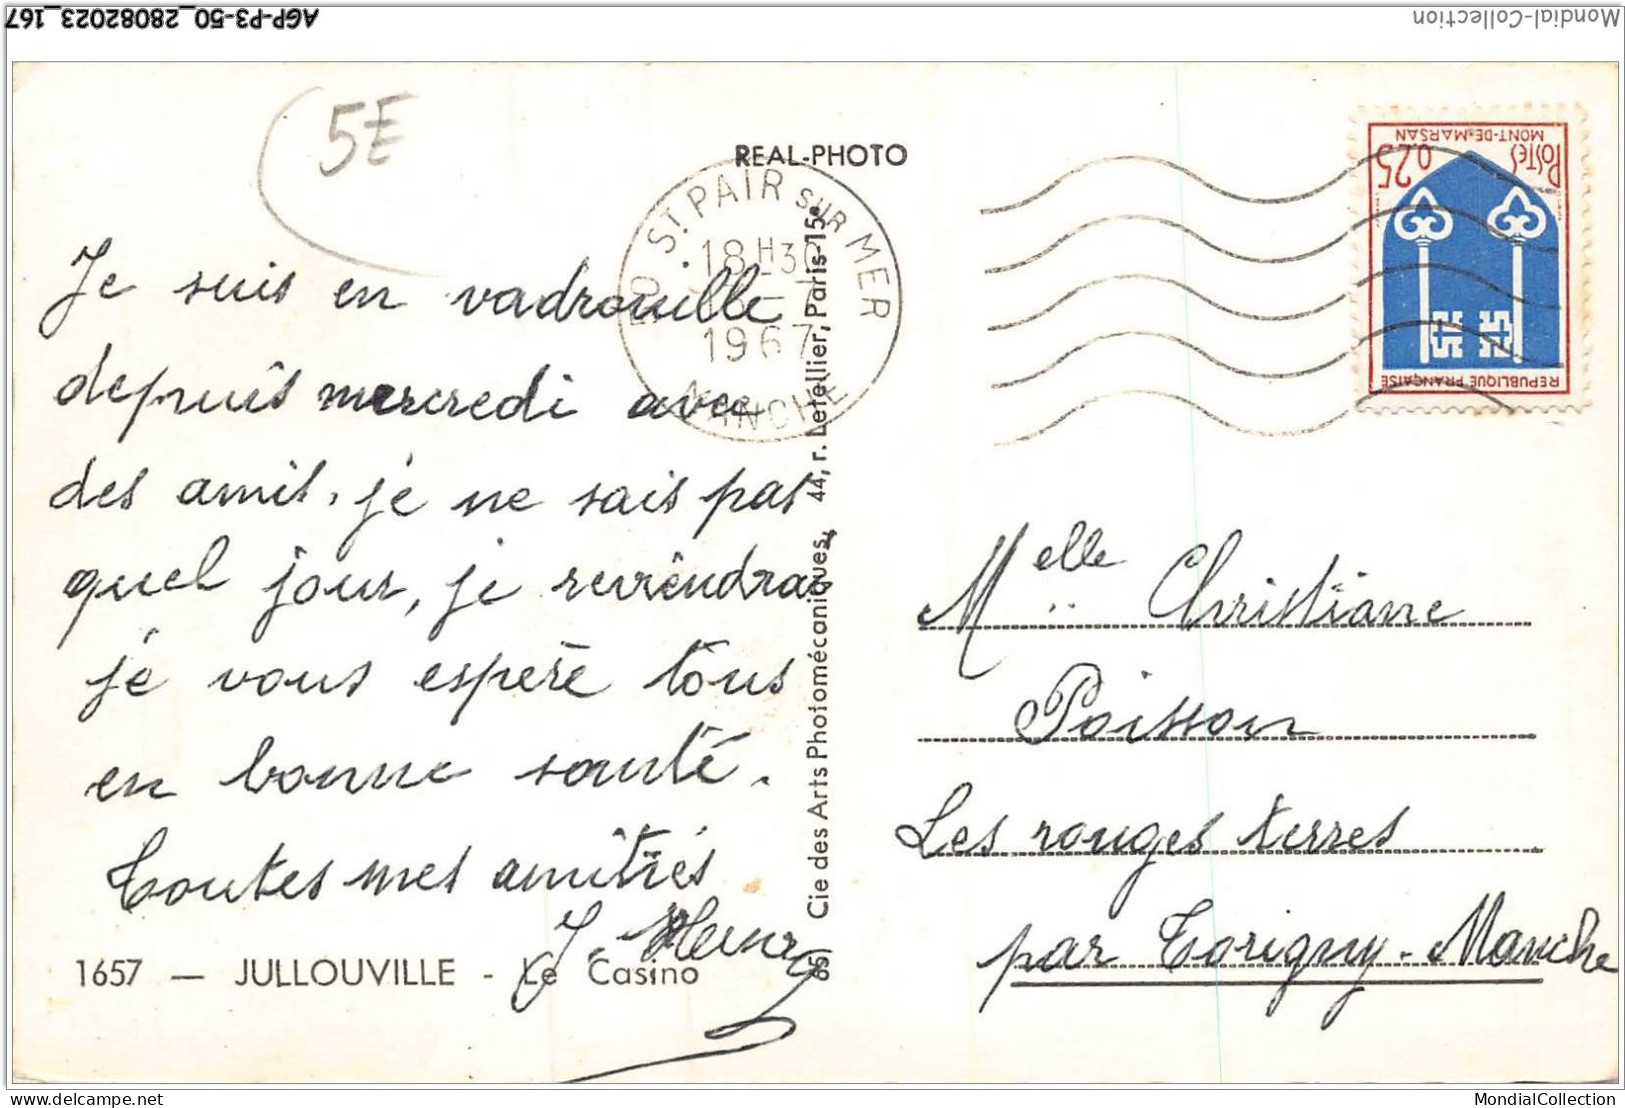 AGP-P3-50_28082023_167
Mondial-Collection
5E
REAL-PHOTO
ST. PAIR SUR MER
18H30
1967
MANCHE
MONT-DE-MARSAN
POSTES 0,25
REPUBLIQUE FRANÇAISE
Je suis en vadrouille
depuis mercredi avec
des amis, je ne sais pas
quel jour, je reviendrai
je vous espère tous
en bonne santé.
Toutes mes amitiés
J. Henry
1657 — JULLOUVILLE - Le Casino
65) Cie des Arts Photomécaniques, 44, r. Letellier, Paris-15e
Melle Christiane
Poisson
Les rouges terres
par Torigny-Manche
delcampe.net
MondialCollection